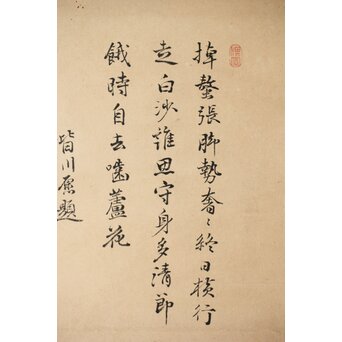 掉螯張脚勢奢〻終日橫行
走白沙誰思守身多清節
餓時自去嚙蘆花
皆川愿題